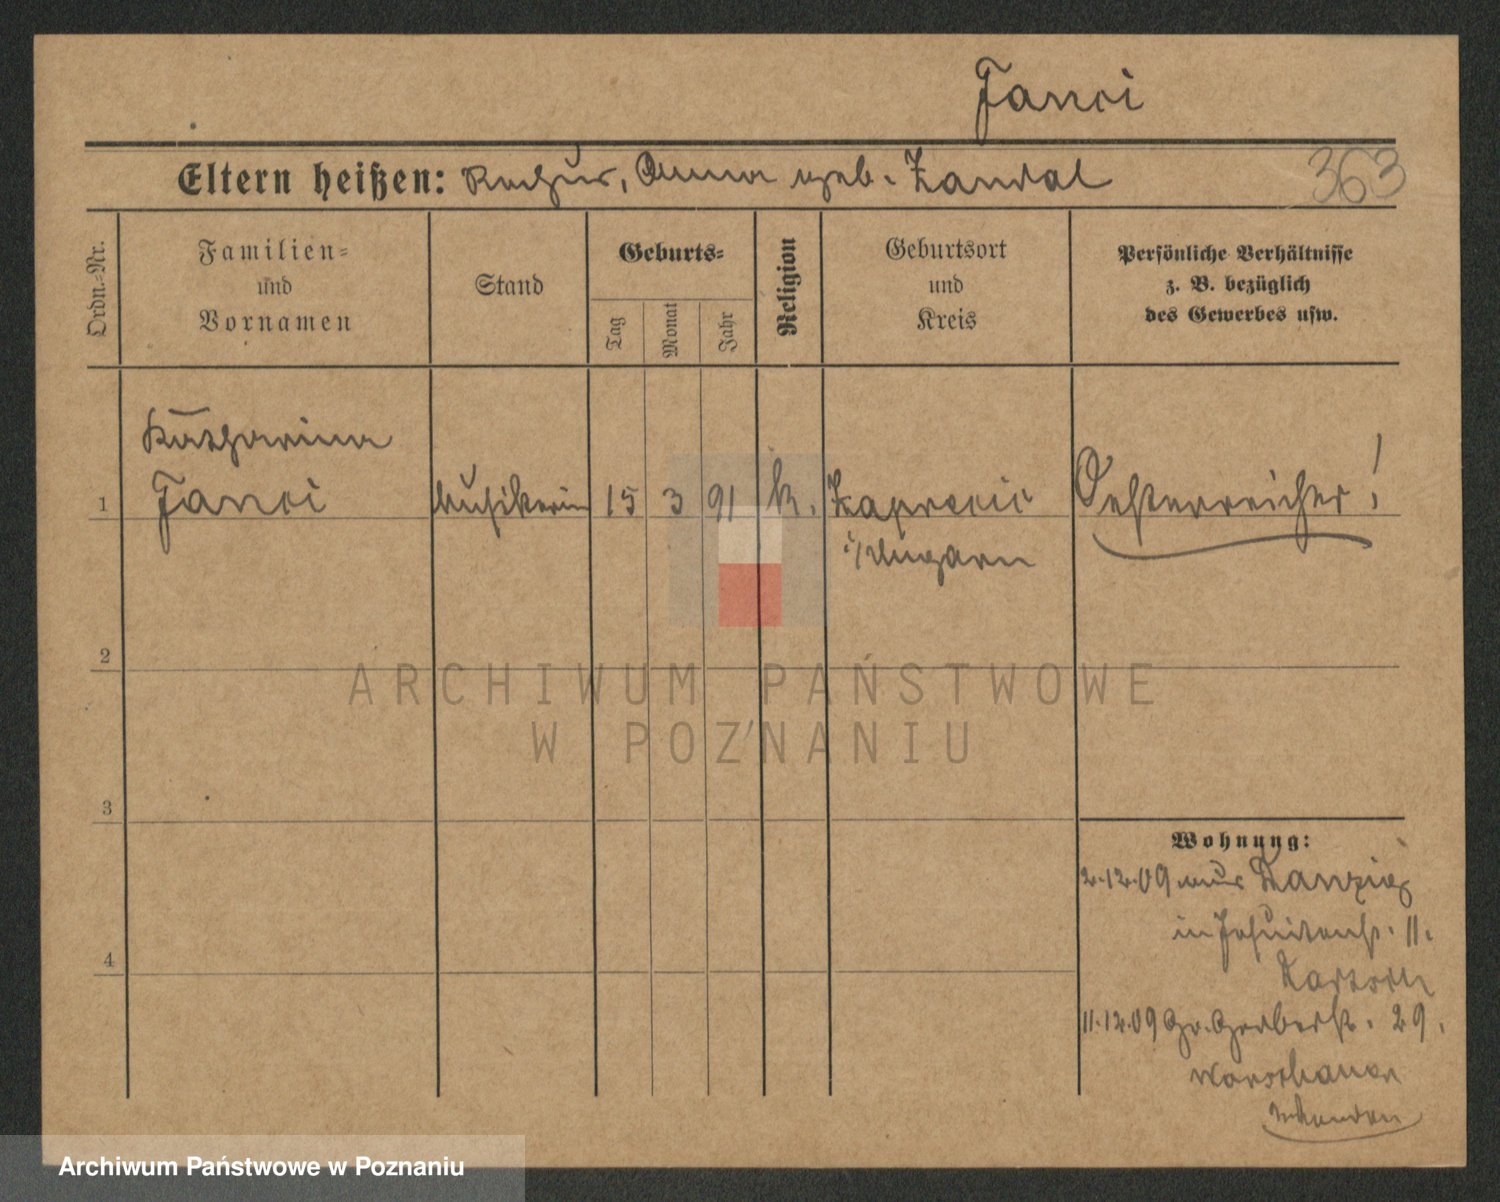 Janci
Eltern heißen: Anna geb. Zandal
363
Ordn.-Nr.
Familien-
und
Vornamen
Stand
Geburts-
Tag
Monat
Jahr
Religion
Geburtsort
und
Kreis
Persönliche Verhältnisse
z. B. bezüglich
des Gewerbes usw.
Katharina
1 Janci Musikerin 15 3 91 k. Oesterreicher!
i/Ungarn
2
ARCHIWUM PAŃSTWOWE
W POZNANIU
3
Wohnung:
2.12.09 aus Danzig
in Jesuitenstr. 11.
4
11.12.09 Gr. Gerberstr. 29.
Warschauer
Archiwum Państwowe w Poznaniu